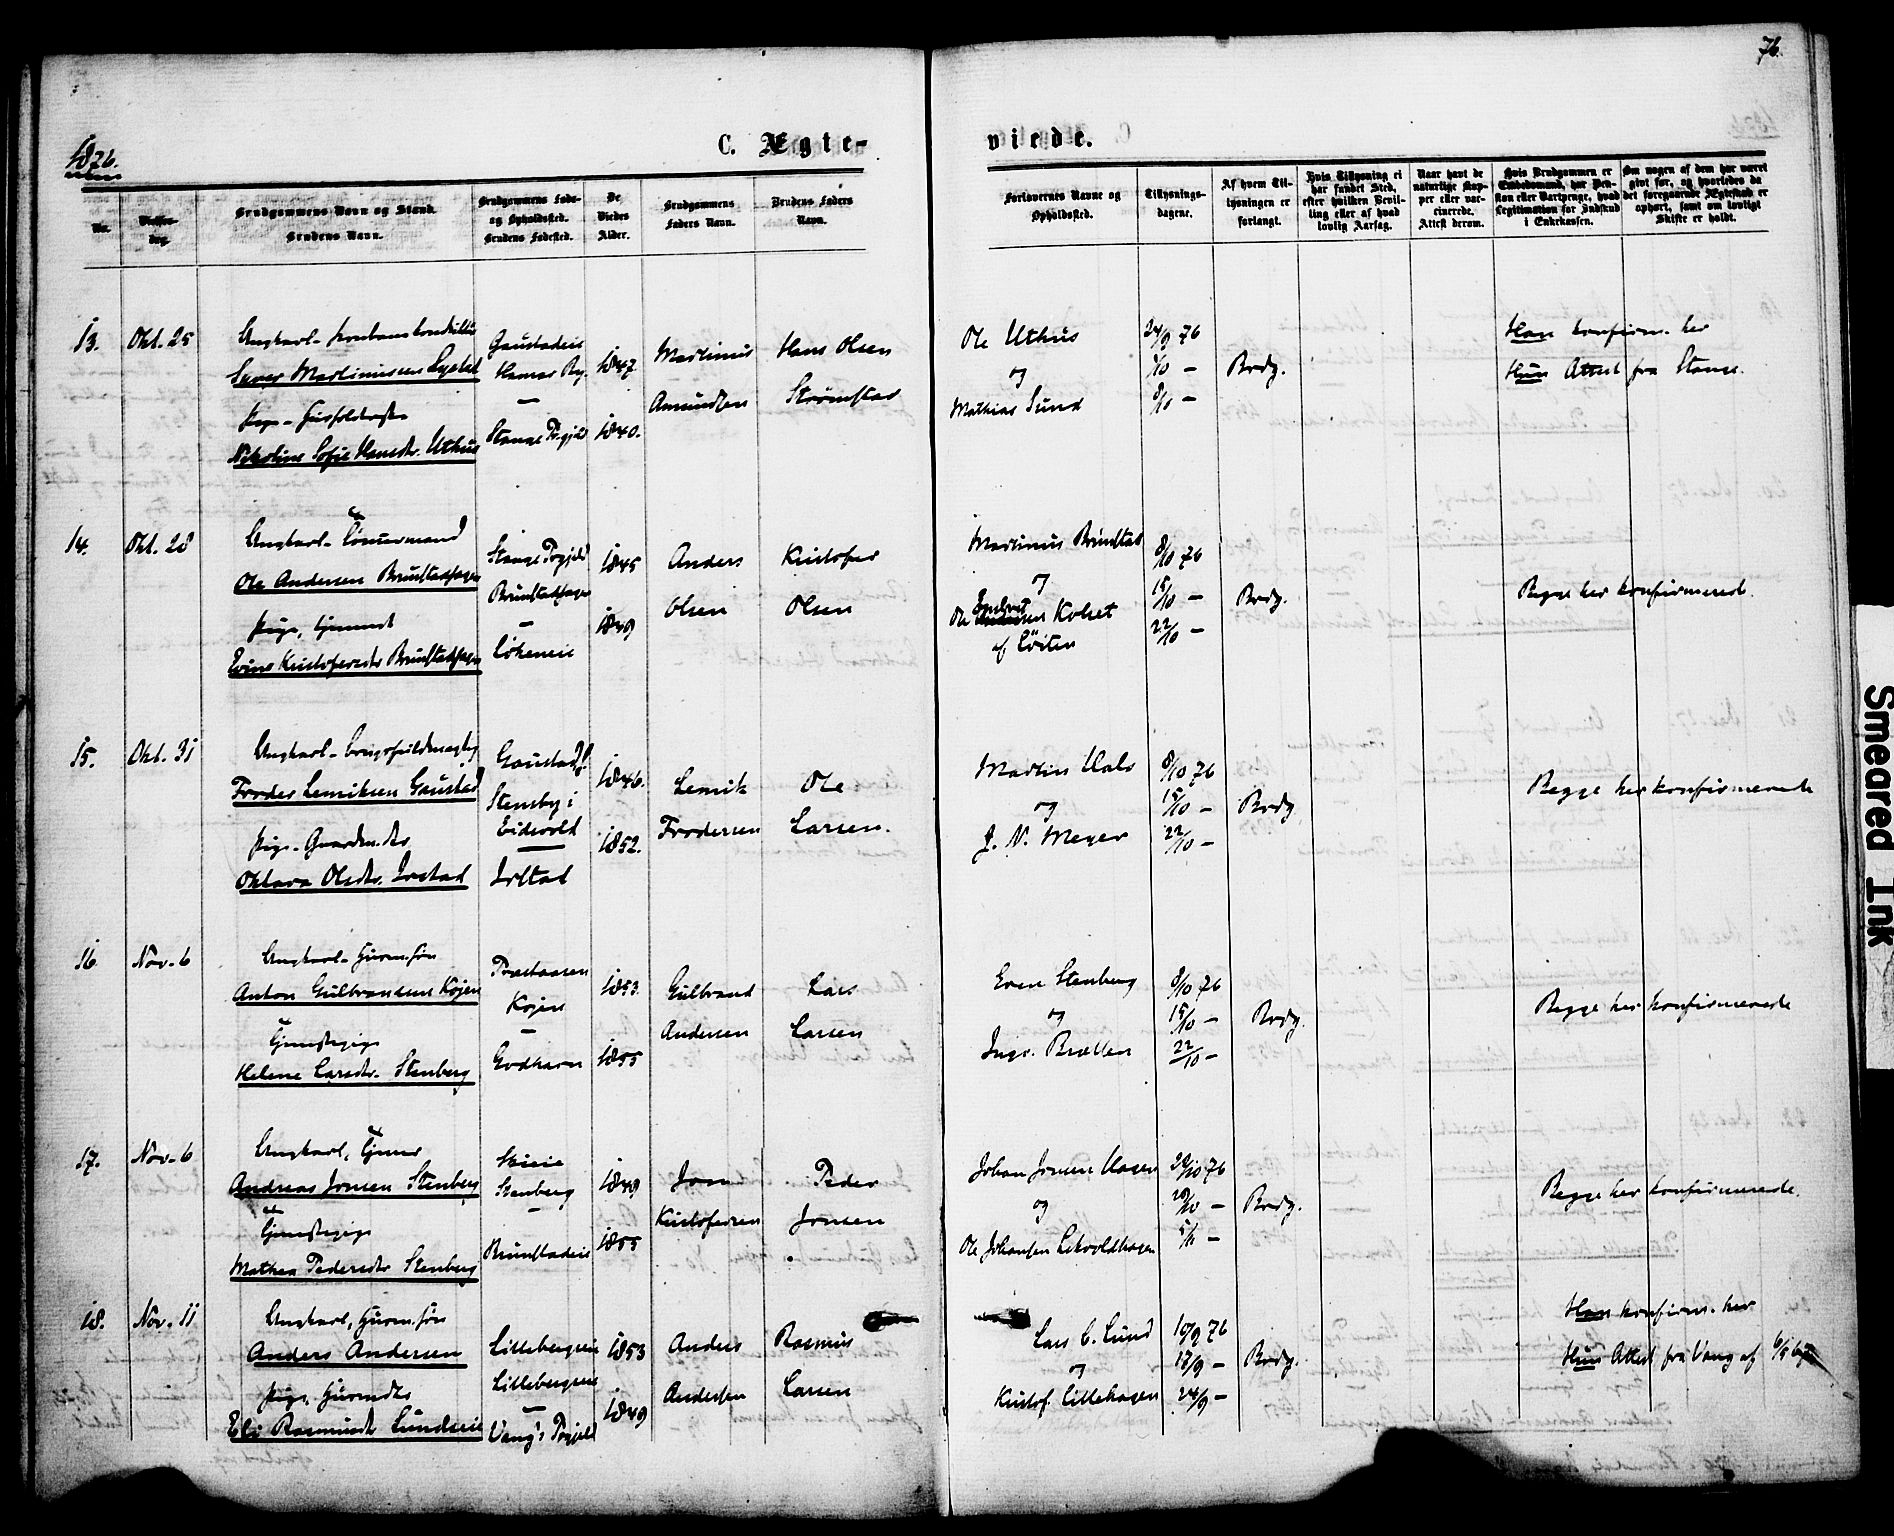 76.
1876.
C. Ægte-
viede.
Nr.
Vielses-
dag.
Brudgommens Navn og Stand.
Brudens Navn.
Brudgommens Føde-
og Opholdssted.
Brudens Fødested.
De
Viedes
Alder.
Brudgommens
Faders Navn.
Brudens Faders
Navn.
Forlovernes Navne og
Opholdssted.
Tillysnings-
dagene.
Af hvem Til-
lysningen er
forlangt.
Hvis Tillysning ei
har fundet Sted,
efter hvilken Bevil-
ling eller af hvad
lovlig Aarsag.
Naar havt de
naturlige Kop-
per eller vac-
cinerede.
Attest derom.
Hvis Brudgommen er
Embedsmand, har Pen-
sion eller Vartpenge, hvad
Legitimation for Indskud
i Enkekassen.
Om nogen af dem har været
gift før, og hvorledes da
det foregaaende Ægteskab er
ophørt, samt om lovligt
Skifte er holdt.
13.
Okt. 25
Ungkarl
Martinusen
Pige
Nikoline Sofie Hansdtr. Uthus
Gaustadeie
Hamar By.
Stange Prgjeld
1847
1840.
Martinus
Amundsen
Hans Olsen
Strømstad
Ole Uthus
og
Mathias Sund
24/9 76
1/10 —
8/10 —
Brdg.
Han konfirm. her
Hun Attest fra Stange.
14.
Okt. 28
Ungkarl
Ole Andersen Brunstadhagen
Pige,
Kristofersdtr Brunstadhagen
Stange Prgjeld
Brunstadhagen
Løkeneie
1845
1849
Anders
Olsen
Kristofer
Olsen
Martinus Brunstad
og
Ole Engebret Kolset
af Løiten
8/10 76
15/10 —
22/10 —
Brdg.
Begge her konfirmerede.
15.
Okt. 31
Ungkarl
Froder Lemiksen Gaustad
Pige - Gaardm.dtr
Oktava Olsdtr. Irstad
Gaustad
Stensby i
Eidsvold
Irstad
1846.
1852.
Lemik
Frodersen
Ole
Larsen.
Martin
og
J. N. Meyer
8/10 76
15/10 —
22/10 —
Brdg
Begge her konfirmerede
16.
Nov. 6
Ungkarl - Husm.søn
Anton Gulbrandsen Kojen
Tjenestepige
Helene Larsdtr. Stenberg
Præstaasen
Kojen
Godhavn
1853.
1855
Gulbrand
Andersen
Lars
Larsen
Even Stenberg
og
Ingv. Bratten
8/10 76
15/10 —
22/10 —
Brdg.
Begge her konfirmerede
17.
Nov. 6
Ungkarl, Tjener
Andreas Jonsen Stenberg
Tjenestepige
Mathea Pedersdtr Stenberg
Stenberg
Brunstadeie
1849
1855
Jon
Kristofersen
Peder
Jonsen
Johan Jonsen
og
Ole Johansen
22/10 76
29/10 —
5/11 —
Brdg.
Begge her konfirmerede.
18.
Nov. 11
Ungkarl, Husm.søn
Anders Andersen
Pige, Husmdtr
Eli Rasmusdtr Lundseie
Lillebergseie
Lillebergseie
Vang's Prgjeld
1853
1849
Anders
Andersen
Rasmus
Larsen
Lars C. Lund
og
Kristof. Lillehagen
10/9 76
17/9 —
24/9 —
Brdg.
Han konfirm. her
Hun Attest fra Vang af
Smeared Ink